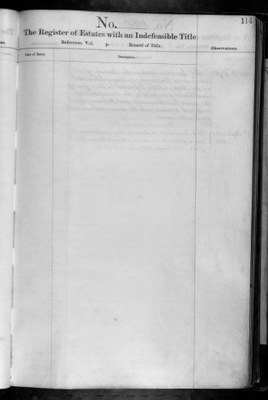 114
No.
The Register of Estates with an Indefeasible Title
Reference, Vol. p. Record of Title.
Observations.
Date of Entry.
Description.